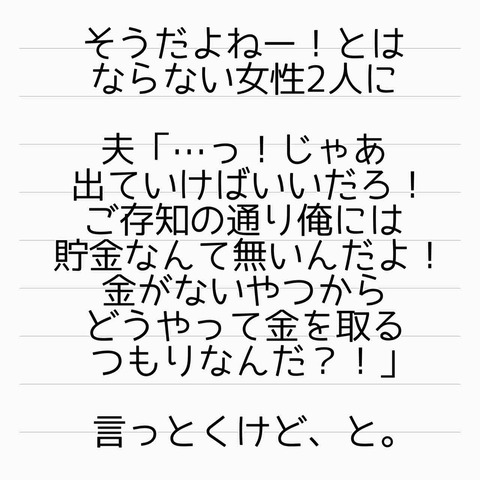 そうだよねー！とは
ならない女性2人に
夫「…っ！じゃあ
出ていけばいいだろ！
ご存知の通り俺には
貯金なんて無いんだよ！
金がないやつから
どうやって金を取る
つもりなんだ？！」
言っとくけど、と。